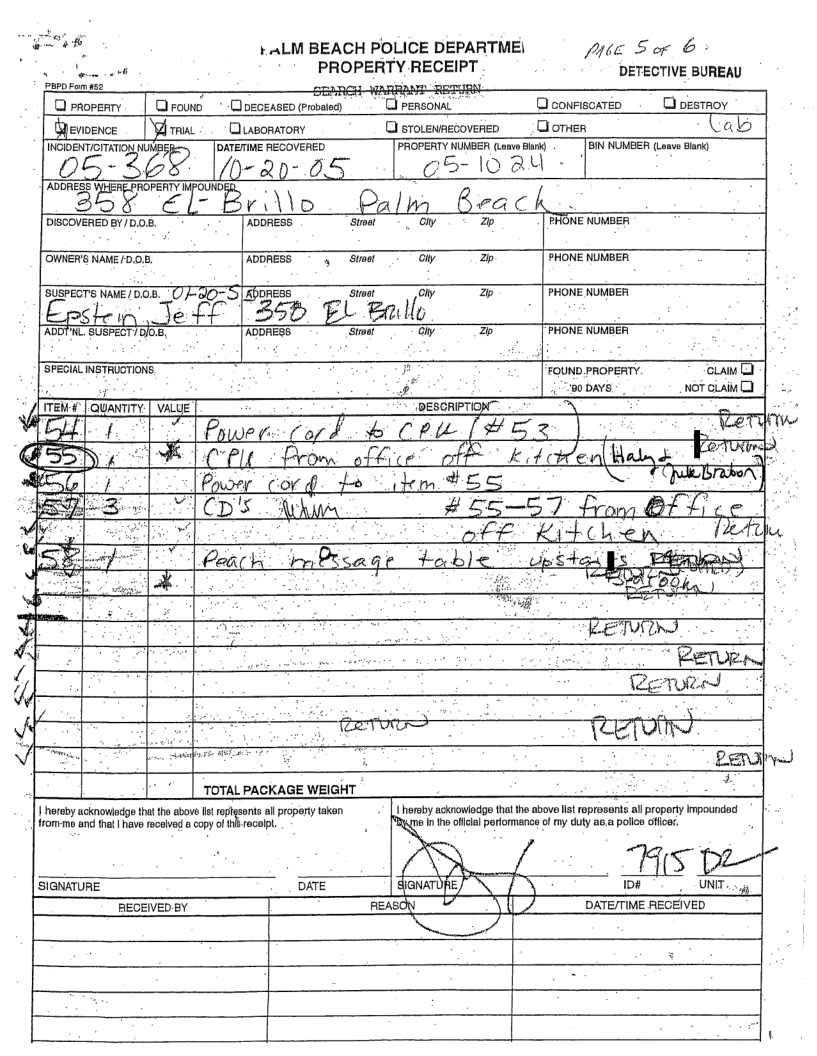 PALM BEACH POLICE DEPARTME
PAGE 5 OF 6
PROPERTY RECEIPT
DETECTIVE BUREAU
PBPD Form #52
SEARCH WARRANT RETURN
PROPERTY FOUND DECEASED (Probated) PERSONAL CONFISCATED DESTROY
EVIDENCE TRIAL LABORATORY STOLEN/RECOVERED OTHER Lab
INCIDENT/CITATION NUMBER DATE/TIME RECOVERED PROPERTY NUMBER (Leave Blank) BIN NUMBER (Leave Blank)
05-368 10-20-05 05-1024
ADDRESS WHERE PROPERTY IMPOUNDED
358 El-Brillo Palm Beach
DISCOVERED BY / D.O.B. ADDRESS Street City Zip PHONE NUMBER
OWNER'S NAME / D.O.B. ADDRESS Street City Zip PHONE NUMBER
SUSPECT'S NAME / D.O.B. 01-20-5 ADDRESS Street City Zip PHONE NUMBER
Epstein Jeff 358 EL Brillo
ADDT'NL. SUSPECT / D/O.B. ADDRESS Street City Zip PHONE NUMBER
SPECIAL INSTRUCTIONS FOUND PROPERTY CLAIM
90 DAYS NOT CLAIM
ITEM # QUANTITY VALUE DESCRIPTION
54 1 Power cord to CPU (#53) Return
55 1 CPU from office off kitchen (Haly &
56 1 Power cord to item #55
57 3 CD's #55-57 from Office
off Kitchen
58 1 Peach message table upstairs
Bedroom
RETURN
RETURN
RETURN
RETURN
RETURN RETURN
RETURN
TOTAL PACKAGE WEIGHT
I hereby acknowledge that the above list represents all property taken
from me and that I have received a copy of this receipt.
I hereby acknowledge that the above list represents all property impounded
by me in the official performance of my duty as a police officer.
7915 D2
SIGNATURE DATE SIGNATURE ID# UNIT
RECEIVED BY REASON DATE/TIME RECEIVED